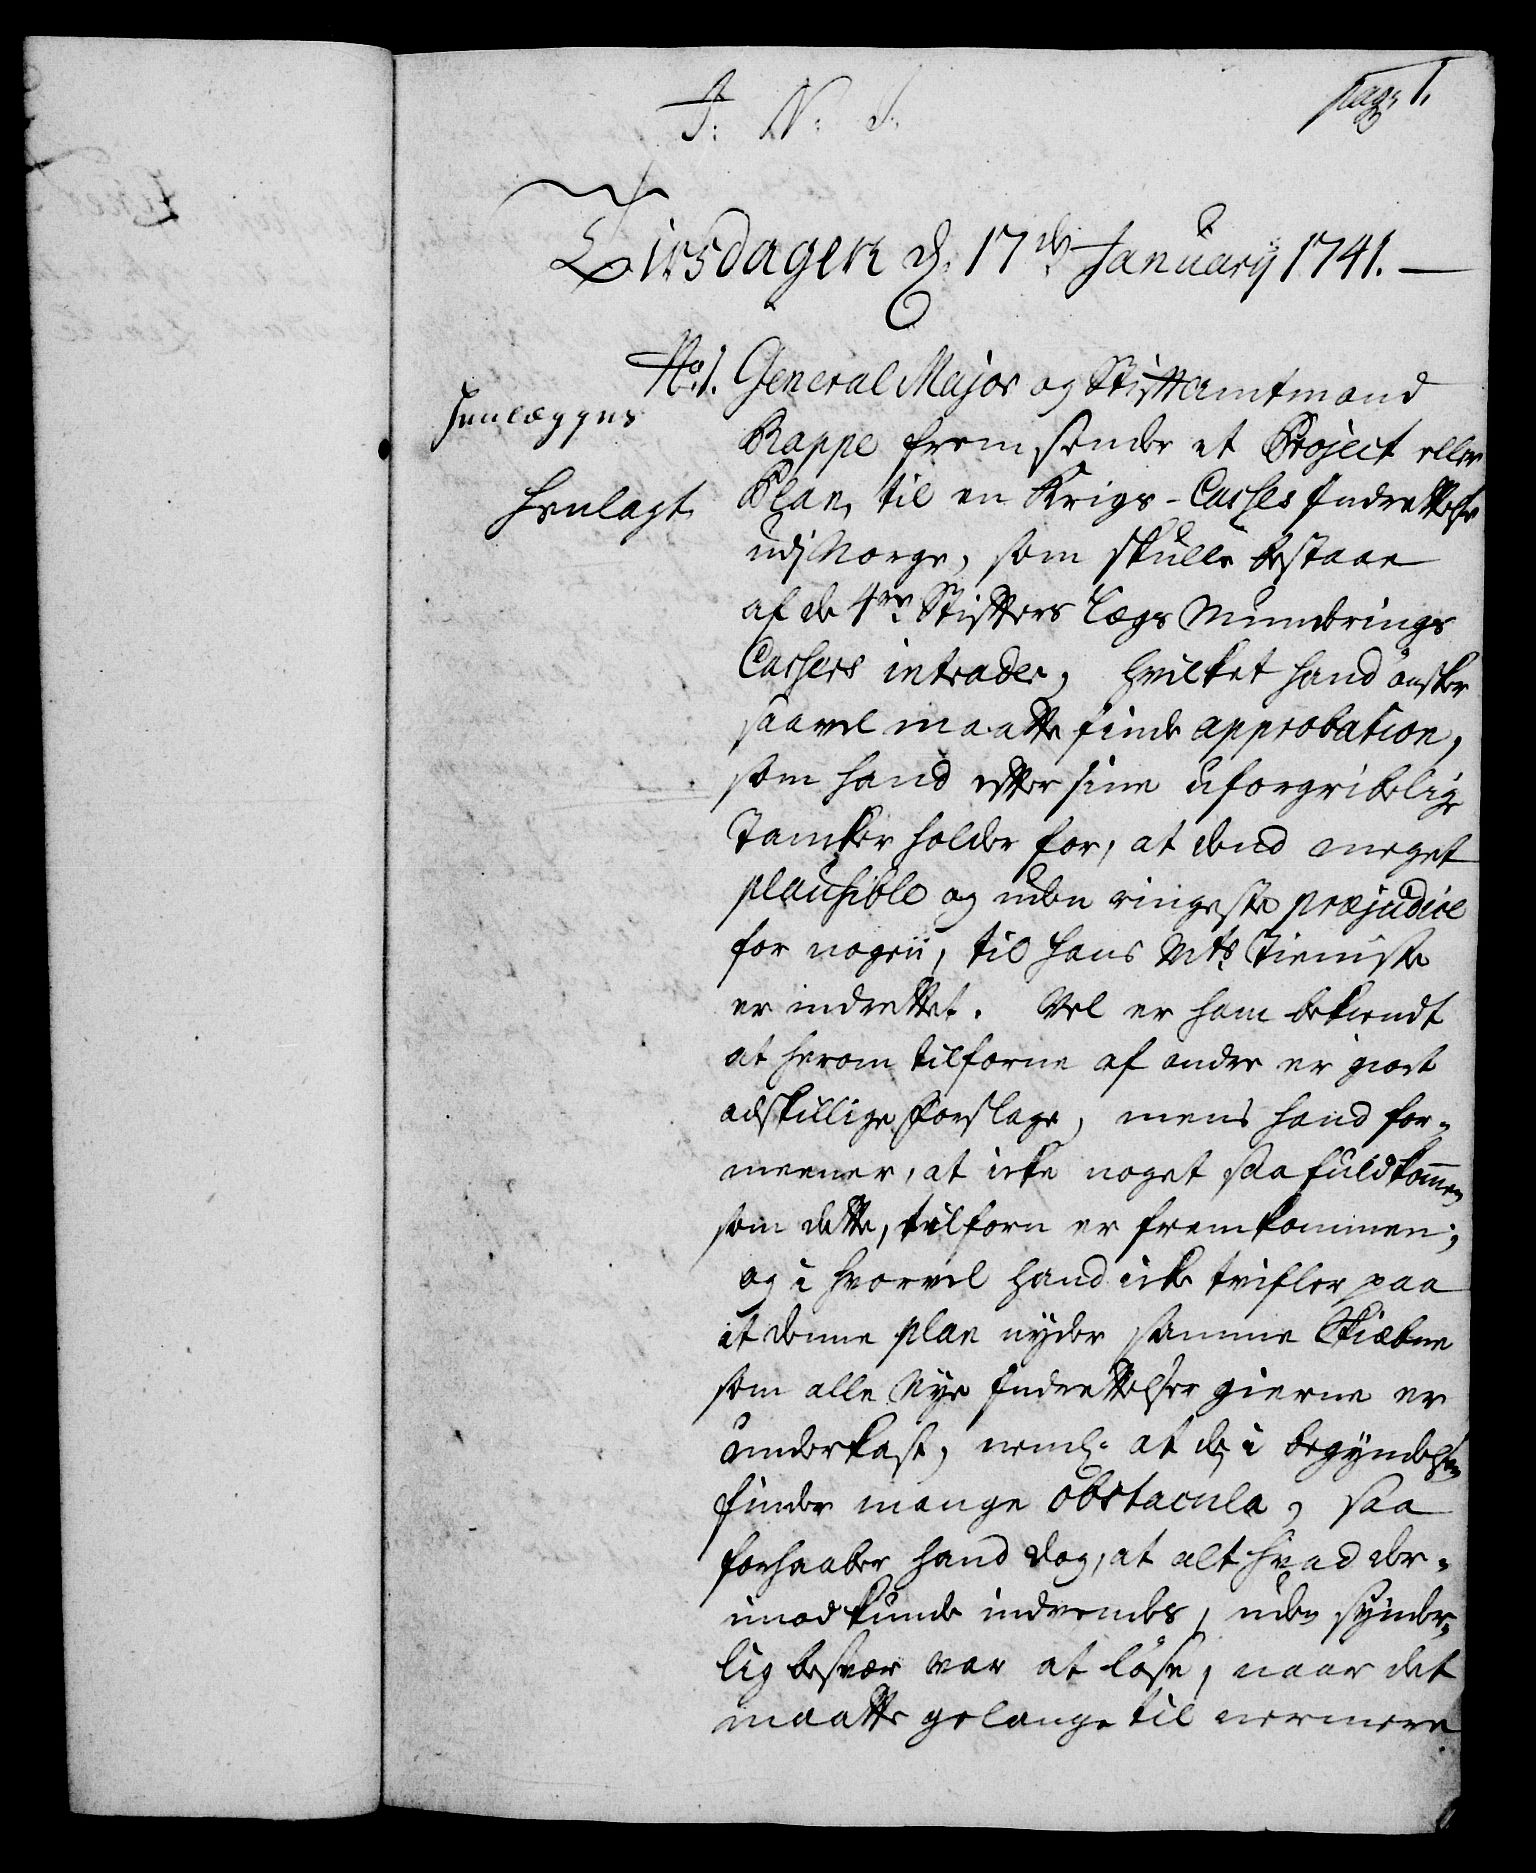 pag: 1.
J: N: J.
Tirsdagen d. 17de January 1741.
No. 1. General Major og Stiftamtmand
Henlægges
Rappe fremsender et Project eller
Henlagt
Plan, til en Krigs-Casses Indrettelse
udj Norge, som skulle bestaae
af de 4re Stifters Lægs Munderings
Cassers intrader, hvilket hand ønsker
saavel maatte finde approbation,
som hand efter sine uforgribelige
Tancker holder for, at dend meget
plausible og uden ringeste præjudice
for nogen, til Hans Mts Tienniste
er indrettet. Vel er ham bekiendt
at herom tilforne af andre er giort
adskillige Forslage, mens hand for-
meener, at icke noget saa fuldkommen
som dette, tilforn er fremkommen;
og i hvorvel hand icke tvifler paa
at denne plan nyder samme Skiæbne
som alle Nye Indrettelser gierne er
underkast, neml: at de i begyndelsen
finder mange obstacula, saa
forhaaber hand dog, at alt hvad der-
imod kunde indvendes, uden synder-
lig besvær var at løse, naar det
maatte gelange til nermere